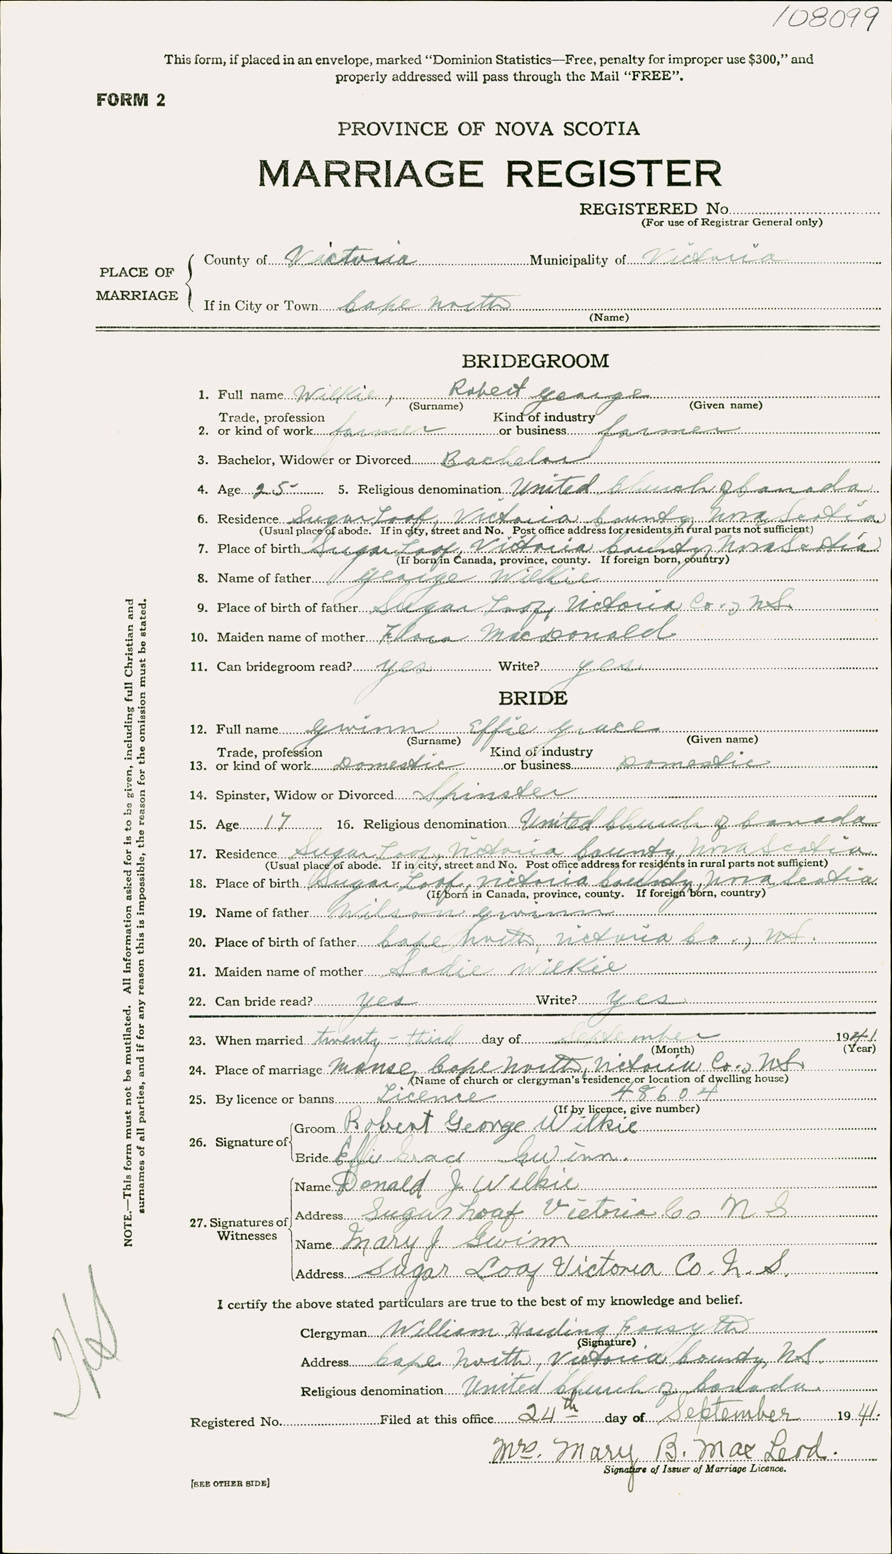 108099
This form, if placed in an envelope, marked "Dominion Statistics—Free, penalty for improper use $300," and
properly addressed will pass through the Mail "FREE".
FORM 2
PROVINCE OF NOVA SCOTIA
MARRIAGE REGISTER
REGISTERED No.
(For use of Registrar General only)
PLACE OF MARRIAGE
County of Victoria Municipality of Victoria
If in City or Town Cape North
(Name)
BRIDEGROOM
1. Full name Wilkie, Robert George
(Surname) (Given name)
Trade, profession Kind of industry
2. or kind of work farmer or business farmer
3. Bachelor, Widower or Divorced Bachelor
4. Age 25 5. Religious denomination United Church of Canada
6. Residence Sugar Loaf, Victoria County, Nova Scotia
(Usual place of abode. If in city, street and No. Post office address for residents in rural parts not sufficient)
7. Place of birth Sugar Loaf, Victoria County, Nova Scotia
(If born in Canada, province, county. If foreign born, country)
8. Name of father George Wilkie
9. Place of birth of father Sugar Loaf, Victoria Co., N.S.
10. Maiden name of mother Flora MacDonald
11. Can bridegroom read? yes Write? yes
BRIDE
12. Full name Gwinn Effie Grace
(Surname) (Given name)
Trade, profession Kind of industry
13. or kind of work Domestic or business Domestic
14. Spinster, Widow or Divorced Spinster
15. Age 17 16. Religious denomination United Church of Canada
17. Residence Sugar Loaf, Victoria County, Nova Scotia
(Usual place of abode. If in city, street and No. Post office address for residents in rural parts not sufficient)
18. Place of birth Sugar Loaf, Victoria County, Nova Scotia
(If born in Canada, province, county. If foreign born, country)
19. Name of father Wilson Gwinn
20. Place of birth of father Cape North, Victoria Co., N.S.
21. Maiden name of mother Sadie Wilkie
22. Can bride read? yes Write? yes
23. When married twenty-third day of September 1941
(Month) (Year)
24. Place of marriage Manse, Cape North, Victoria Co., N.S.
(Name of church or clergyman's residence or location of dwelling house)
25. By licence or banns Licence 48604
(If by licence, give number)
26. Signature of
Groom Robert George Wilkie
Bride Effie Grace Gwinn.
27. Signatures of Witnesses
Name Donald J Wilkie
Address Sugar Loaf Victoria Co N S
Name Mary J Gwinn
Address Sugar Loaf Victoria Co. N. S.
I certify the above stated particulars are true to the best of my knowledge and belief.
Clergyman William Harding Forsyth
(Signature)
Address Cape North, Victoria County, N.S.
Religious denomination United Church of Canada.
Registered No. Filed at this office 24th day of September 1941.
Mrs. Mary B. MacLeod.
Signature of Issuer of Marriage Licence.
[SEE OTHER SIDE]
NOTE.—This form must not be mutilated. All information asked for is to be given, including full Christian and
surnames of all parties, and if for any reason this is impossible, the reason for the omission must be stated.